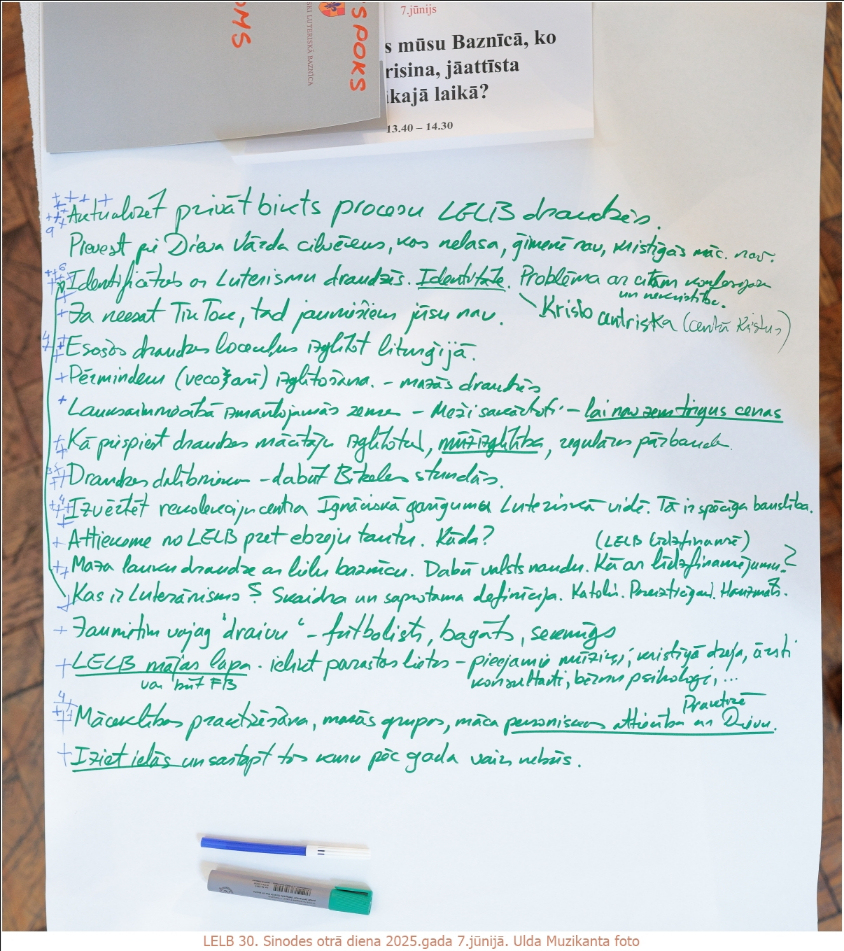 7.jūnijs
s mūsu Baznīcā, ko
risina, jāattīsta
ikajā laikā?
13.40 – 14.30
SPOKS
OMS
LUTERISKĀ BAZNĪCA
Aktualizēt privāt bikts procesu LELB draudzēs.
Pievest pi Dieva Vārda cilvēkus, kas nelasa, ģimenē nav, kristīgās māc. nav.
Identificēties ar Luterismu draudzēs. Identitāte. Problēma ar citām konfesijām
un nekristība.
Ja neesat Tik Tok, tad jauniešiem jūsu nav. Kristo centriska (centrā Kristus)
Esošos draudzes locekļus izglītot liturģijā.
Pērminderu izglītošana. – mazās draudzēs
Lauksaimniecībā izmantojamās zemes – Meži sakārtoti – lai nav zem tirgus cenas
Kā piespiest draudzes mācītāju izglītoties, mūžizglītība, regulāras pārbaudes.
Draudzes dalībniekus – dabūt Bībeles stundās.
Izvērtēt rekolekciju centra Ignāciskā garīguma Luteriskā vidē. Tā ir spēcīga bauslība.
Attieksme no LELB pret ebreju tautu. Kāda? (LELB līdzfinansē)
Maza lauku draudze ar lielu baznīcu. Dabū valsts naudu. Kā ar līdzfinansējumu?
Kas ir Luterānisms? Skaidra un saprotama definīcija. Katoļi. Pareizticīgari.
Jaunietim vajag "draivu" – futbolists, bagāts, sekmīgs
LELB mājas lapa. ielikt parastas lietas – pieejamie mūziķi, kristīgā dzeja, ārsti
var būt FB konsultanti, bērnu psihologi, ...
Praktizē
Mācekļības praktizēšana, mazās grupas, māca personiskas attiecība ar Dievu.
Iziet ielās un sastapt tos kuru pēc gada vairs nebūs.
LELB 30. Sinodes otrā diena 2025.gada 7.jūnijā. Ulda Muzikanta foto